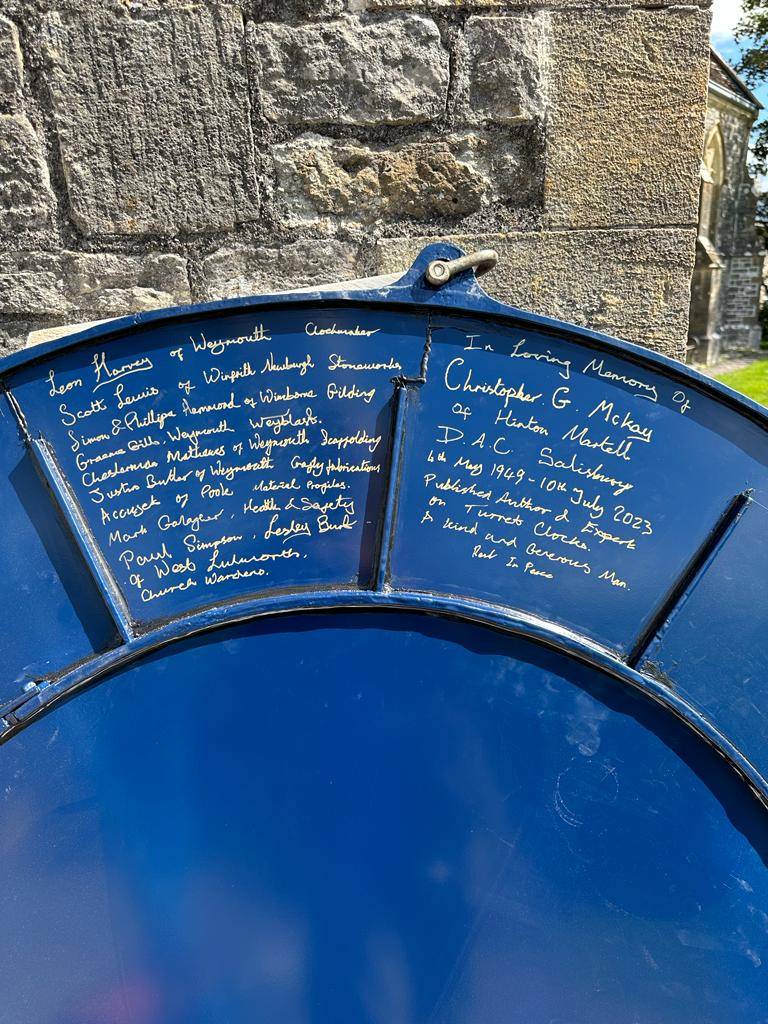 Leon Harvey of Weymouth Clockmaker
Scott Lewis of Winfrith Newburgh Stoneworks
Simon & Phillipa Hammond of Wimborne Gilding
Graeme Gills, Weymouth Weyblast.
Chesterman Mathews of Weymouth Scaffolding
Justin Butler of Weymouth fabrications
of Poole Material Profiles.
Mark Galagher, Health & Safety
Paul Simpson, Lesley
of West Lulworth.
Church Wardens.
In Loving Memory Of
Christopher. G. McKay
of Hinton Martell
D.A.C. Salisbury
May 1949 - 10th July 2023
Published Author & Expert
on Turret Clocks.
A kind and Generous Man.
Rest In Peace